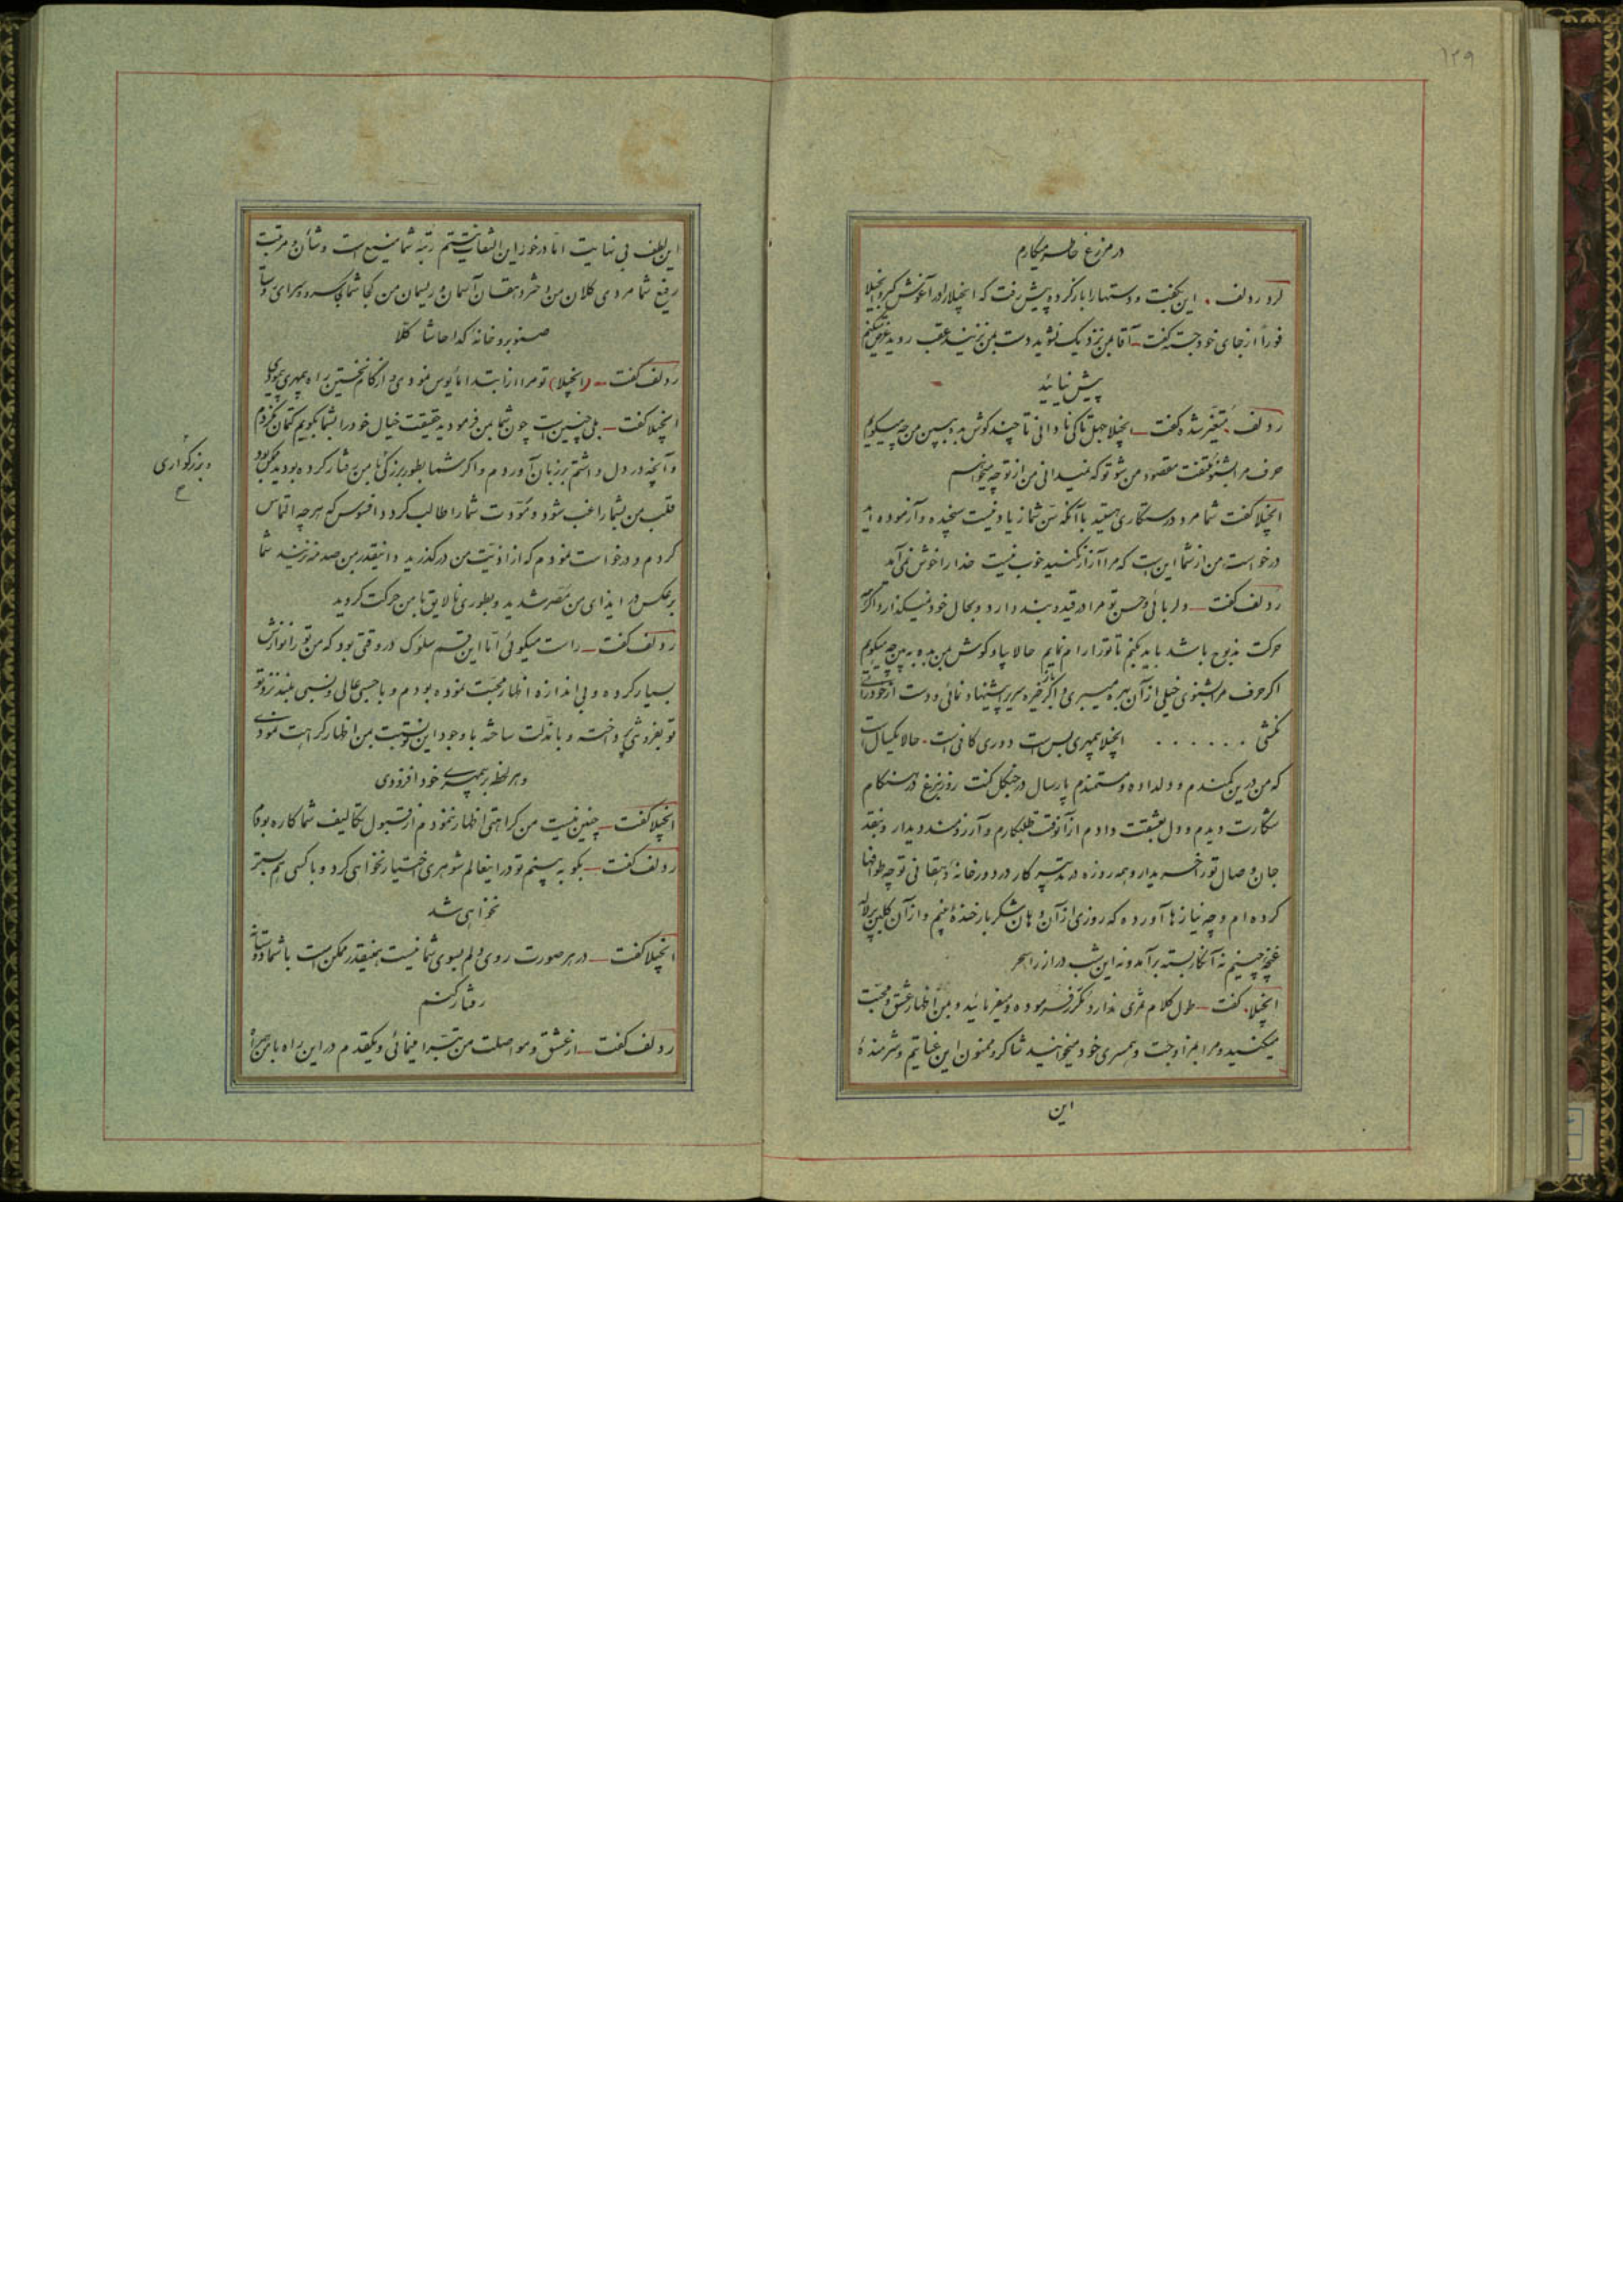 ۱۲۹
در مزرع خاطر میکارم
لرد ردلف . این بگفت و دستها را باز کرده پیش رفت که انجیلا را در آغوش گیرد انجیلا
فوراً از جای خود جسته گفت ـ آقا بمن نزدیک نشوید دست بمن نزنید عقب روید عرض میکنم
پیش نیائید
ردلف . متغیر شده گفت ـ انجیلا جهل تا کی نادانی تا چند گوش بده ببین من چه میگویم
حرف مرا بشنو ملتفت مقصود من شو تو که نمیدانی من از تو چه میخواهم
انجیلا گفت شما مرد درستکاری هستید با آنکه سن شما زیاد نیست سنجیده و آزموده اید
درخواست من از شما این است که مرا آزار نکنید خوب نیست خدا را خوش نمی آید
ردلف گفت ـ دلربائی و حسن تو مرا در قید و بند دارد و بحال خود نمیگذارد اگر
حرکت مذبوح باشد باید بکنم تا تو را رام نمایم حالا بیا و گوش بمن بده ببین چه میگویم
اگر حرف مرا بشنوی خیلی از آن بهره میبری و اگر خیره سری را پیشنهاد نمائی و دست از خودرائی
نکشی . . . . . . انجیلا بیمهری بس است دوری کافی است . حالا یکسال است
که من در این کمندم و دلداده و مستمندم پارسال در جنگل کنت روزنبرغ در هنگام
شکارت دیدم و دل بعشقت دادم از آنوقت طلبکارم و آرزومند دیدار و بنقد
جان وصال تو را خریدار و همه روزه در تدبیر کار در دور خانهٔ دهقانی تو چه طوافها
کرده ام و چه نیازها آورده که روزی از آن دهان شکر بار خندهٔ بینم و از آن گلبن پر لاله
غنچه چینم نه آن کار بسته برآمد و نه این شب دراز را سحر
انجیلا . گفت ـ طول کلام ثمری ندارد مکرر فرموده و میفرمائید و بمن اظهار عشق و محبت
میکنید و مرا بمزاوجت و همسری خود میخوانید شاکر و ممنون این عنایتم و شرمندهٔ
این
این لطف بی نهایت اما درخور این التفات نیستم رتبه شما منیع است و شأن و مرتبت
رفیع شما مردی کلان من دختر دهقان آسمان و ریسمان من کجا شما کجا سرو و سرای دوستان
صنوبر و خانه گدا حاشا کلا
ردلف گفت ـ (انجیلا) تو مرا از ابتدا مأیوس نمودی و از گام نخستین راه بیمهری پیمودی
انجیلا گفت ـ بلی چنین است چون شما بمن فرمودید حقیقت خیال خود را بشما بگویم کتمان نکردم
و آنچه در دل داشتم بر زبان آوردم و اگر شما بطور بزرگی با من رفتار کرده بودید ممکن بود
و بزرگواری
قلب من بشما راغب شود و مودت شما را طالب گردد افسوس که هر چه التماس
کردم و درخواست نمودم که از اذیت من درگذرید و اینقدر بمن صدمه نزنید شما
برعکس در ایذای من مصر شدید و بطوری نالایق با من حرکت کردید
ردلف گفت ـ راست میگوئی اما این قسم سلوک در وقتی بود که من تو را نوازش
بسیار کرده و بی اندازه اظهار محبت نموده بودم و با حسبی عالی و نسبی بلند نزد تو
تو بفروتنی پرداخته و با مذلت ساخته با وجود این تو نسبت بمن اظهار کراهت نمودی
و هر لحظه بر بیمهری خود افزودی
انجیلا گفت ـ چنین نیست من کراهتی اظهار ننمودم از قبول تکالیف شما کاره بودم
ردلف گفت ـ بگو به بینم تو در اینعالم شوهری اختیار نخواهی کرد و با کسی هم بستر
نخواهی شد
انجیلا گفت ـ در هر صورت روی دلم بسوی شما نیست همینقدر ممکن است با شما دوستانه
رفتار کنم
ردلف گفت ـ از عشق و مواصلت من تبرا مینمائی و یکقدم در این راه با من همراه